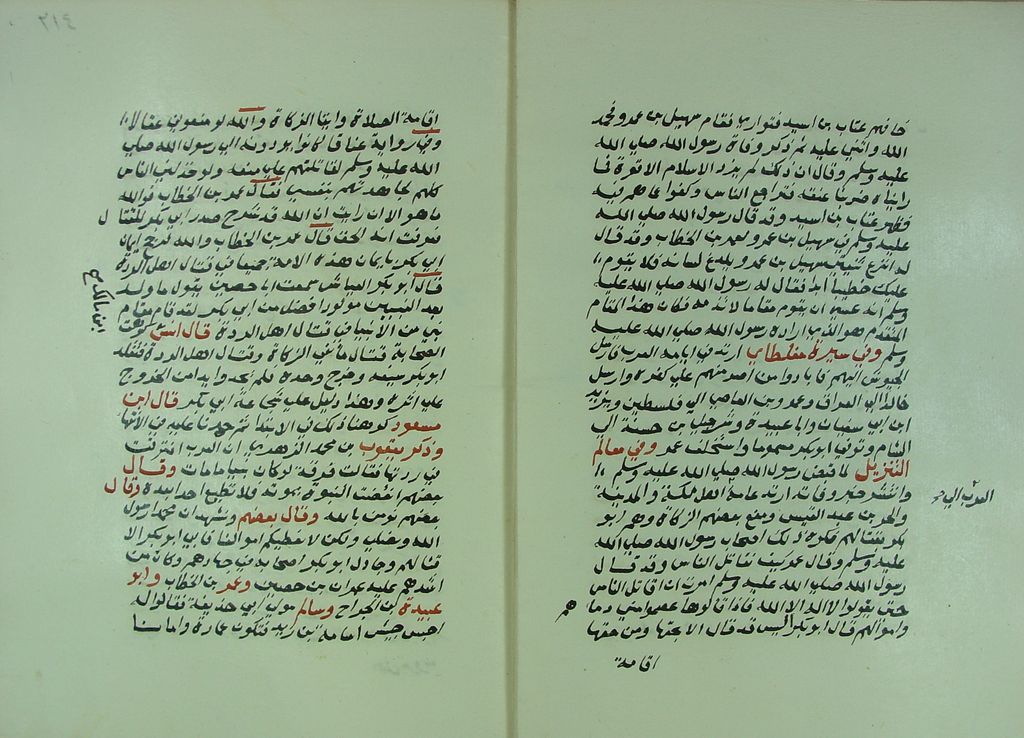 خافهم عتاب بن اسيد فتوارى فقام سهيل بن عمرو فحمد
الله واثنى عليه ثم ذكر وفاة رسول الله صلى الله
عليه وسلم وقال ان ذلك لم يزد الاسلام الا قوة فمن
رابنا ضربنا عنقه فتراجع الناس وكفوا عما هم فيه
فظهر عتاب بن اسيد وقد قال رسول الله صلى الله
عليه وسلم في سهيل بن عمرو لعمر بن الخطاب وقد قال
له انزع ثنيتي سهيل بن عمرو يلدغ لسانه فلا يقوم
عليك خطيبا ابدا فقال له رسول الله صلى الله عليه
وسلم انه عسى ان يقوم مقاما لا تذمه فكان هذا المقام
المتقدم هو الذي اراده رسول الله صلى الله عليه
وسلم وفي سيرة مغلطاي ارتد في ايامه العرب فارسل
الجيوش اليهم فابادوا من اصر منهم على كفره وارسل
خالدا الى العراق وعمرو بن العاصي الى فلسطين ويزيد
ابن ابي سفيان وابا عبيدة وشرحبيل بن حسنة الى
الشام وتوفي ابو بكر مسموما واستخلف عمر وفي معالم
التنزيل لما قبض رسول الله صلى الله عليه وسلم
وانتشر خبر وفاته ارتد عامة العرب الا اهل مكة والمدينة
والبحرين عبد القيس ومنع بعضهم الزكاة وهم ابو
بكر بقتالهم فكره ذلك اصحاب رسول الله صلى الله
عليه وسلم وقال عمر كيف نقاتل الناس وقد قال
رسول الله صلى الله عليه وسلم امرت ان اقاتل الناس
حتى يقولوا لا اله الا الله فاذا قالوها عصموا مني دماءهم
واموالهم قال ابو بكر اليس قد قال الا بحقها ومن حقها
اقامة
اقامة الصلاة وايتا الزكاة والله لو منعوني عقالا
وفي رواية عناقا كانوا يودونه الى رسول الله صلى
الله عليه وسلم لقاتلتهم على منعه ولو خذلني الناس
كلهم لجاهدتهم بنفسي فقال عمر بن الخطاب فوالله
ما هو الا ان رايت ان الله قد شرح صدر ابي بكر للقتال
فعرفت انه الحق قال عمر بن الخطاب والله لرجح ايمان
ابي بكر بايمان هذه الامة جميعا في قتال اهل الردة
قال ابو بكر بن عياش سمعت ابا حصين يقول ما ولد
بعد النبيين مولود افضل من ابي بكر لقد قام مقام
نبي من الانبيا في قتال اهل الردة قال انس بن مالك كرهت
الصحابة قتال مانعي الزكاة وقتال اهل الردة فتقلد
ابو بكر سيفه وخرج وحده فلم يجدوا بدا من الخروج
على اثره وهذا دليل على شجاعة ابي بكر قال ابن
مسعود كرهنا ذلك في الابتدا ثم حمدنا عليه في الانتها
وذكر يعقوب بن محمد الزهري ان العرب افترقت
في ردتها فقالت فرقة لو كان نبيا ما مات وقال
بعضهم انقضت النبوة بموته فلا نطيع احدا بعده وقال
بعضهم نومن بالله وقال بعضهم ونشهد ان محمدا رسول
الله ونصلي ولكن لا نعطيكم اموالنا فابى ابو بكر الا
قتالهم وجادل ابو بكر اصحابه في جهادهم وكان من
اشدهم عليه عمران بن حصين وعمر بن الخطاب وابو
عبيدة بن الجراح وسالم مولى ابي حذيفة فقالوا له
احبس جيش اسامة بن زيد فتكون عمارة وامانا